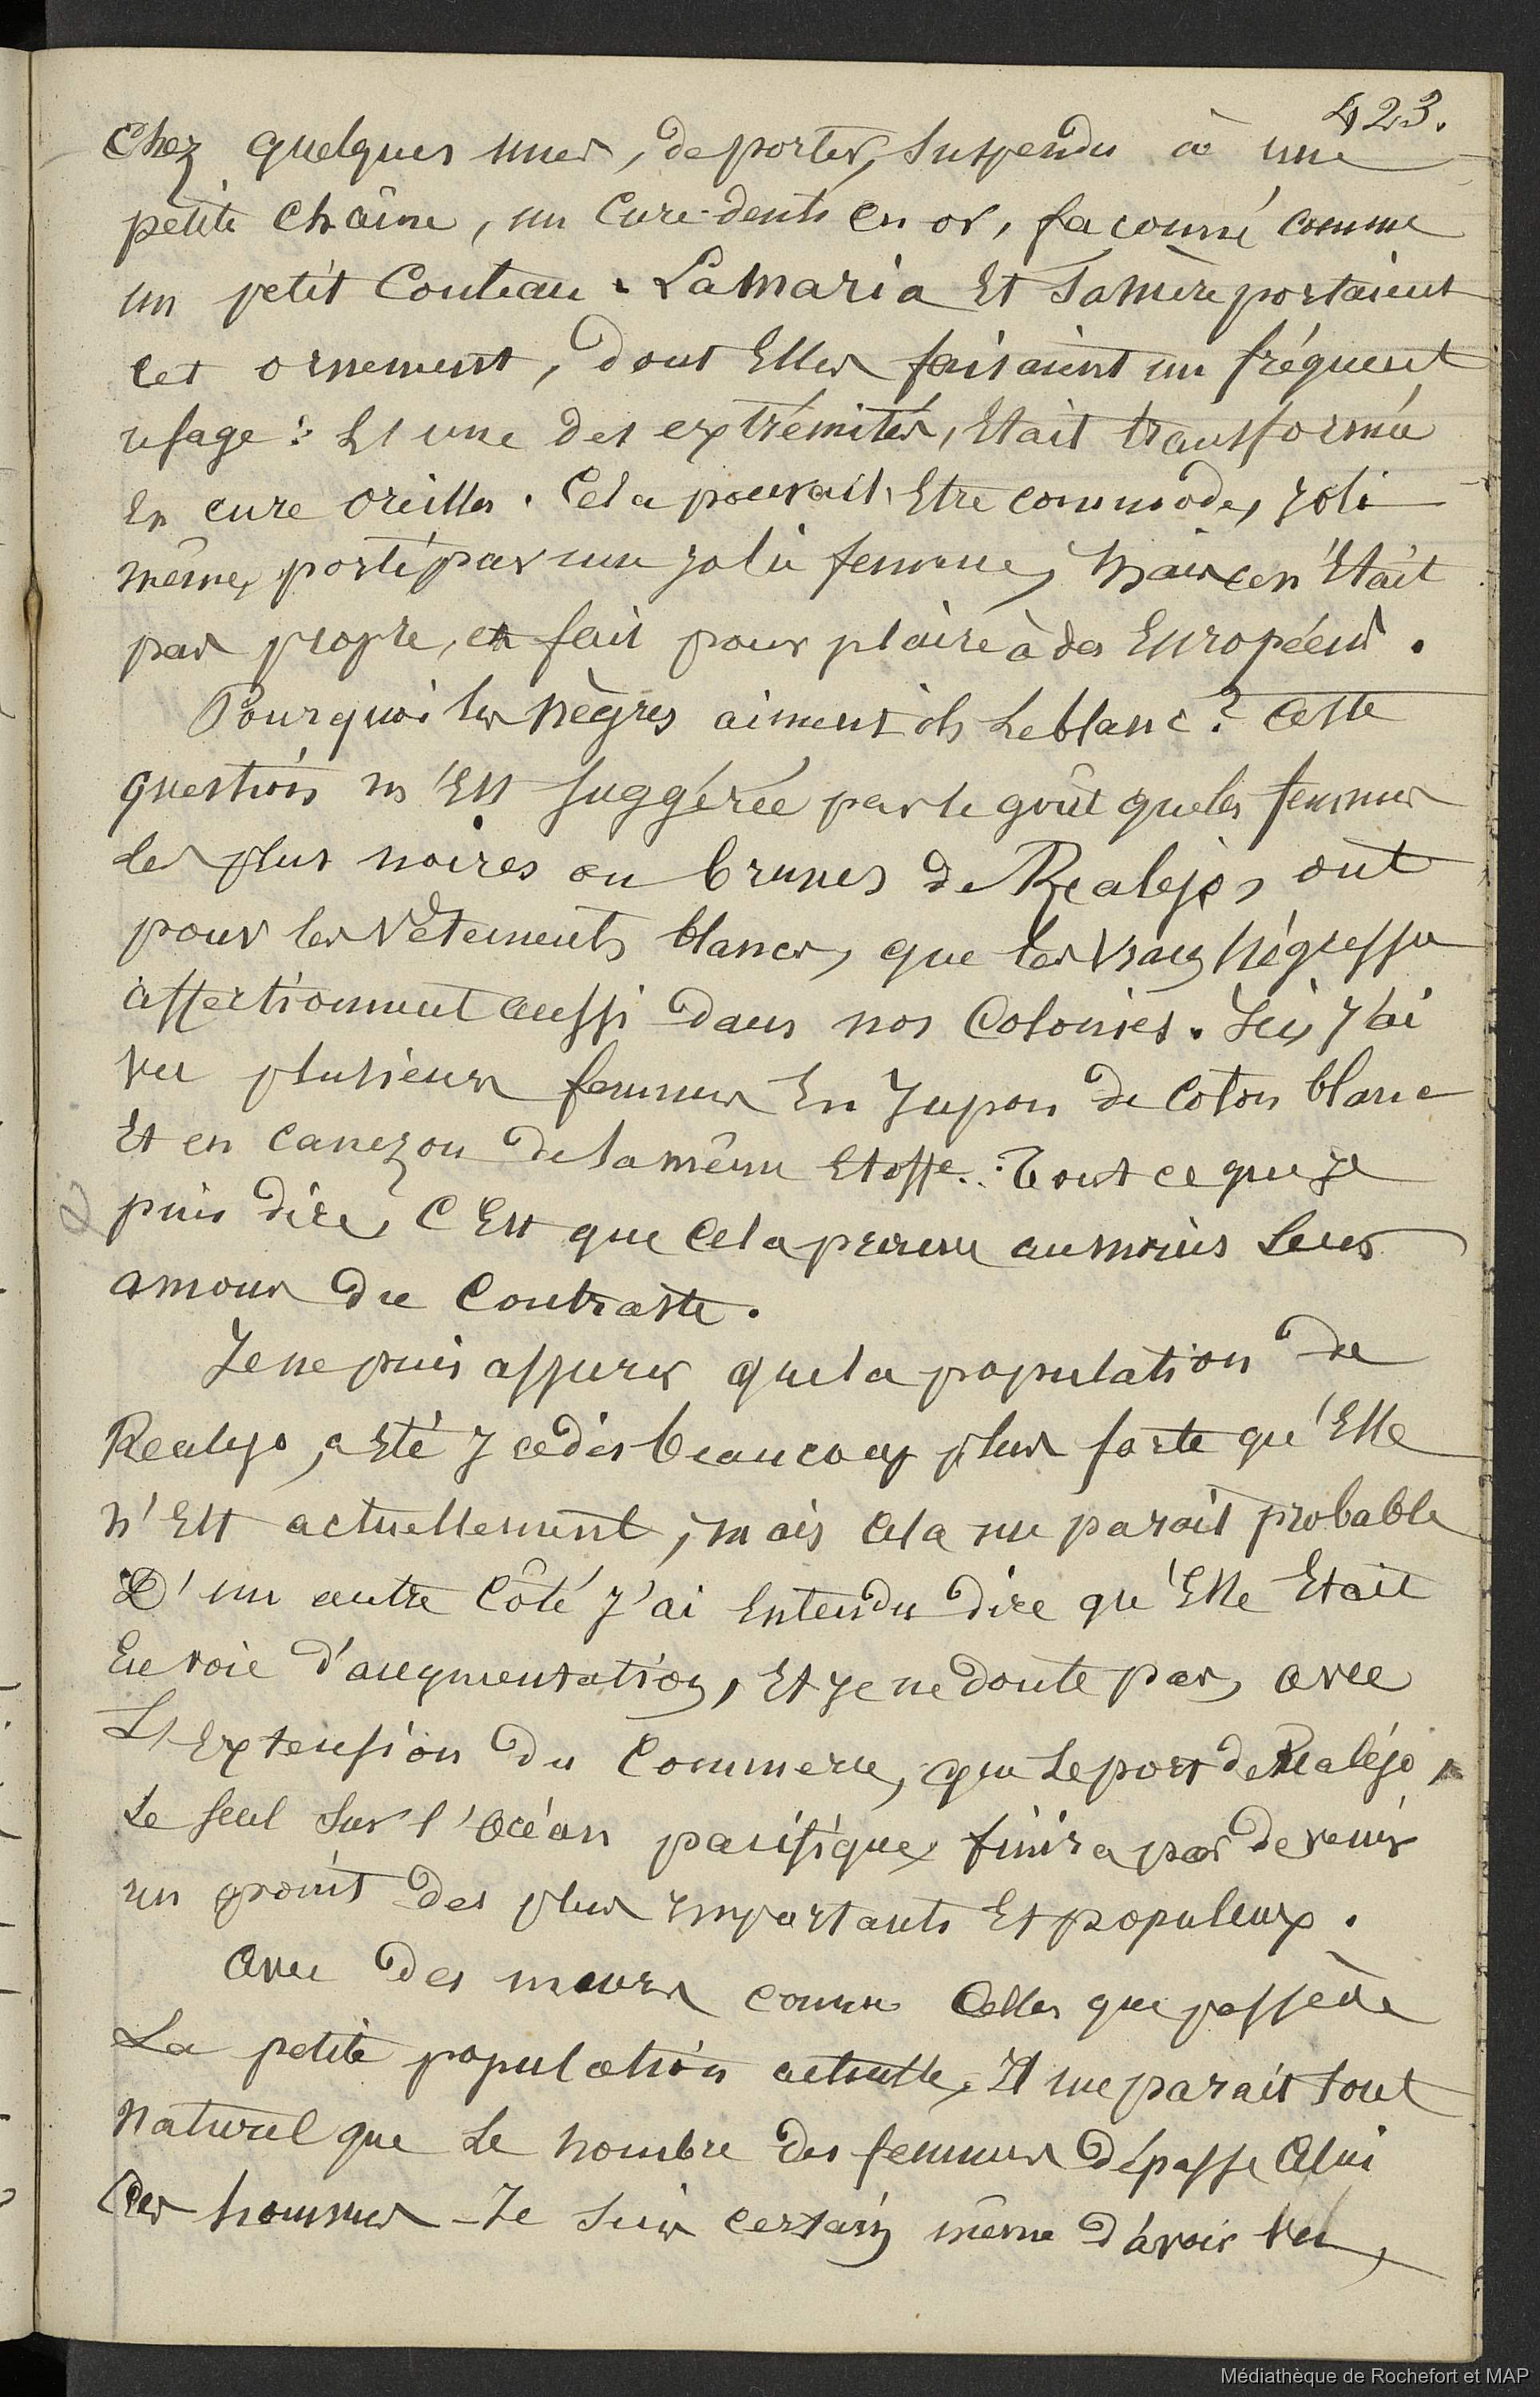 423.
Chez quelques unes, de porter, suspendu à une
petite chaîne, un cure-dents en or, façonné comme
un petit couteau. La Maria et sa mère portaient
cet ornement, dont elles faisaient un fréquent
usage : L'une des extrémités, était transformée
en cure oreilles. Cela pouvait être commode, joli
même, porté par une jolie femme, mais ce n'était
pas propre, et fait pour plaire à des Européens.
Pourquoi les nègres aiment ils le blanc ? Cette
question m'est suggérée par le goût que les femmes
les plus noires ou brunes de Realejo, ont
pour les vêtements blancs, que les vrais négresses
affectionnent aussi dans nos colonies. Ici, j'ai
vu plusieurs femmes en jupon de coton blanc
et en canezou de la même étoffe. Tout ce que je
puis dire, c'est que cela prouve au moins leur
amour du contraste.
Je ne puis assurer que la population de
Realejo, a été jadis beaucoup plus forte qu'elle
n'est actuellement, mais cela me parait probable
D'un autre côté j'ai entendu dire qu'elle était
en voie d'augmentation, et je ne doute pas, avec
L'extension du commerce, que le port de Realéjo,
le seul sur l'océan pacifique, finira par devenir
un point des plus importants et populeux.
Avec des mœurs comme celles que possède
La petite population actuelle, il me parait tout
naturel que le nombre des femmes dépasse celui
des hommes - Je suis certain même d'avoir vu,
Médiathèque de Rochefort et MAP